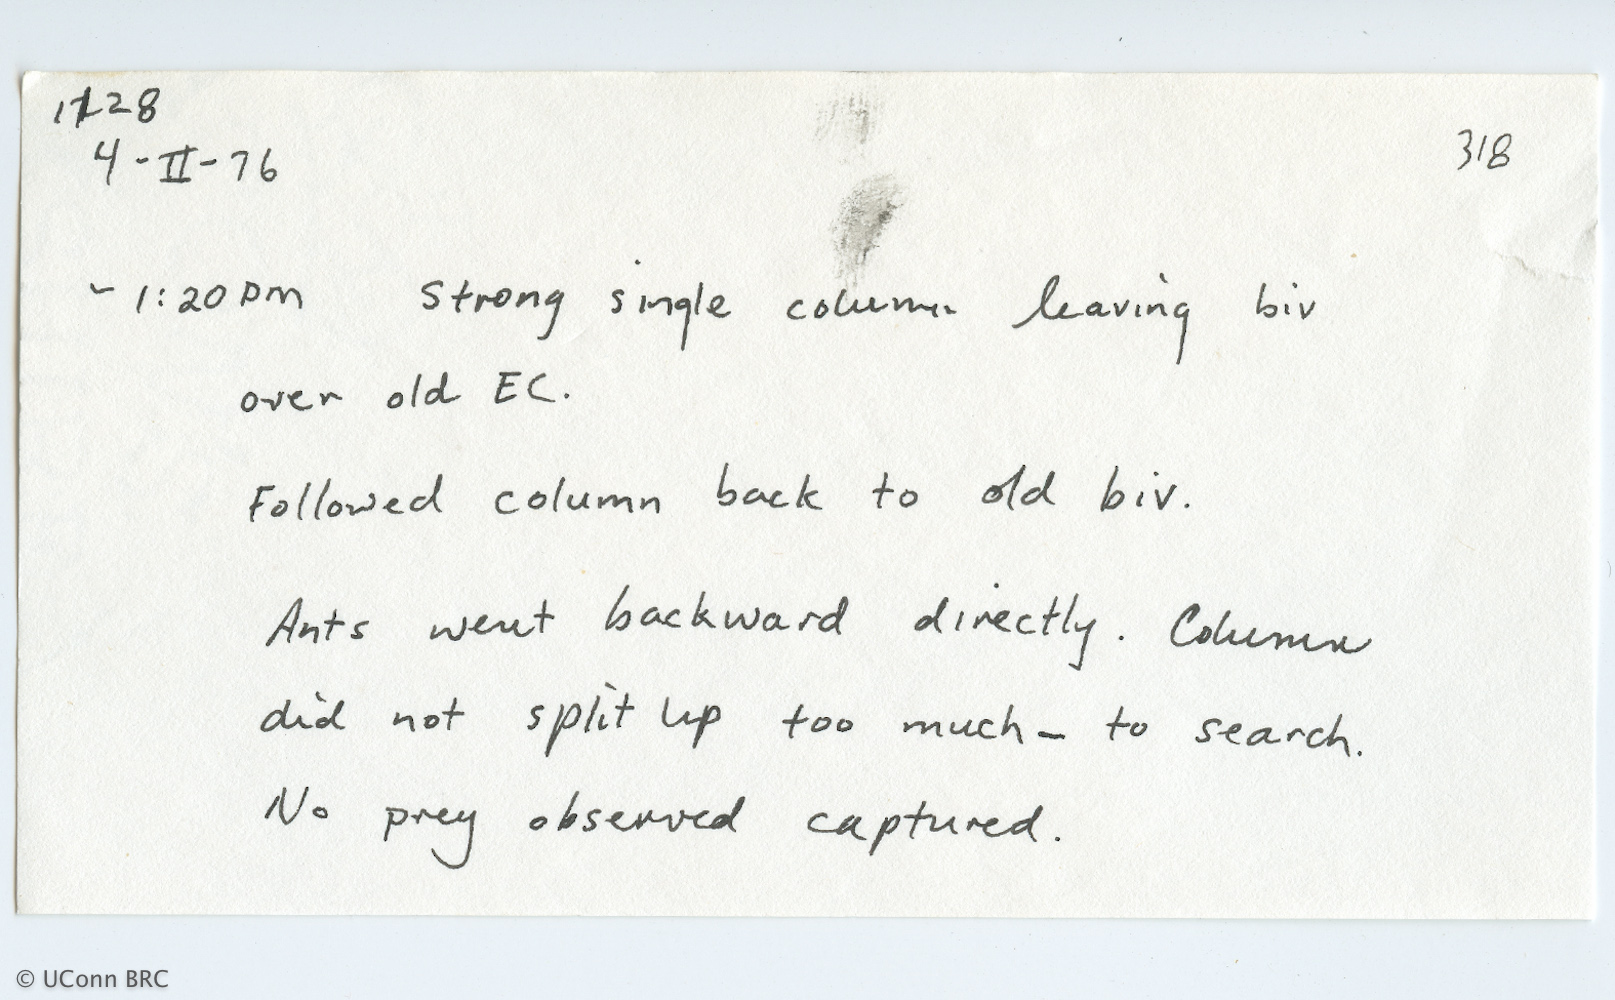 4-II-76
318
~ 1:20 pm Strong single column leaving biv
over old EC.
Followed column back to old biv.
Ants went backward directly. Column
did not split up too much - to search.
No prey observed captured.
© UConn BRC